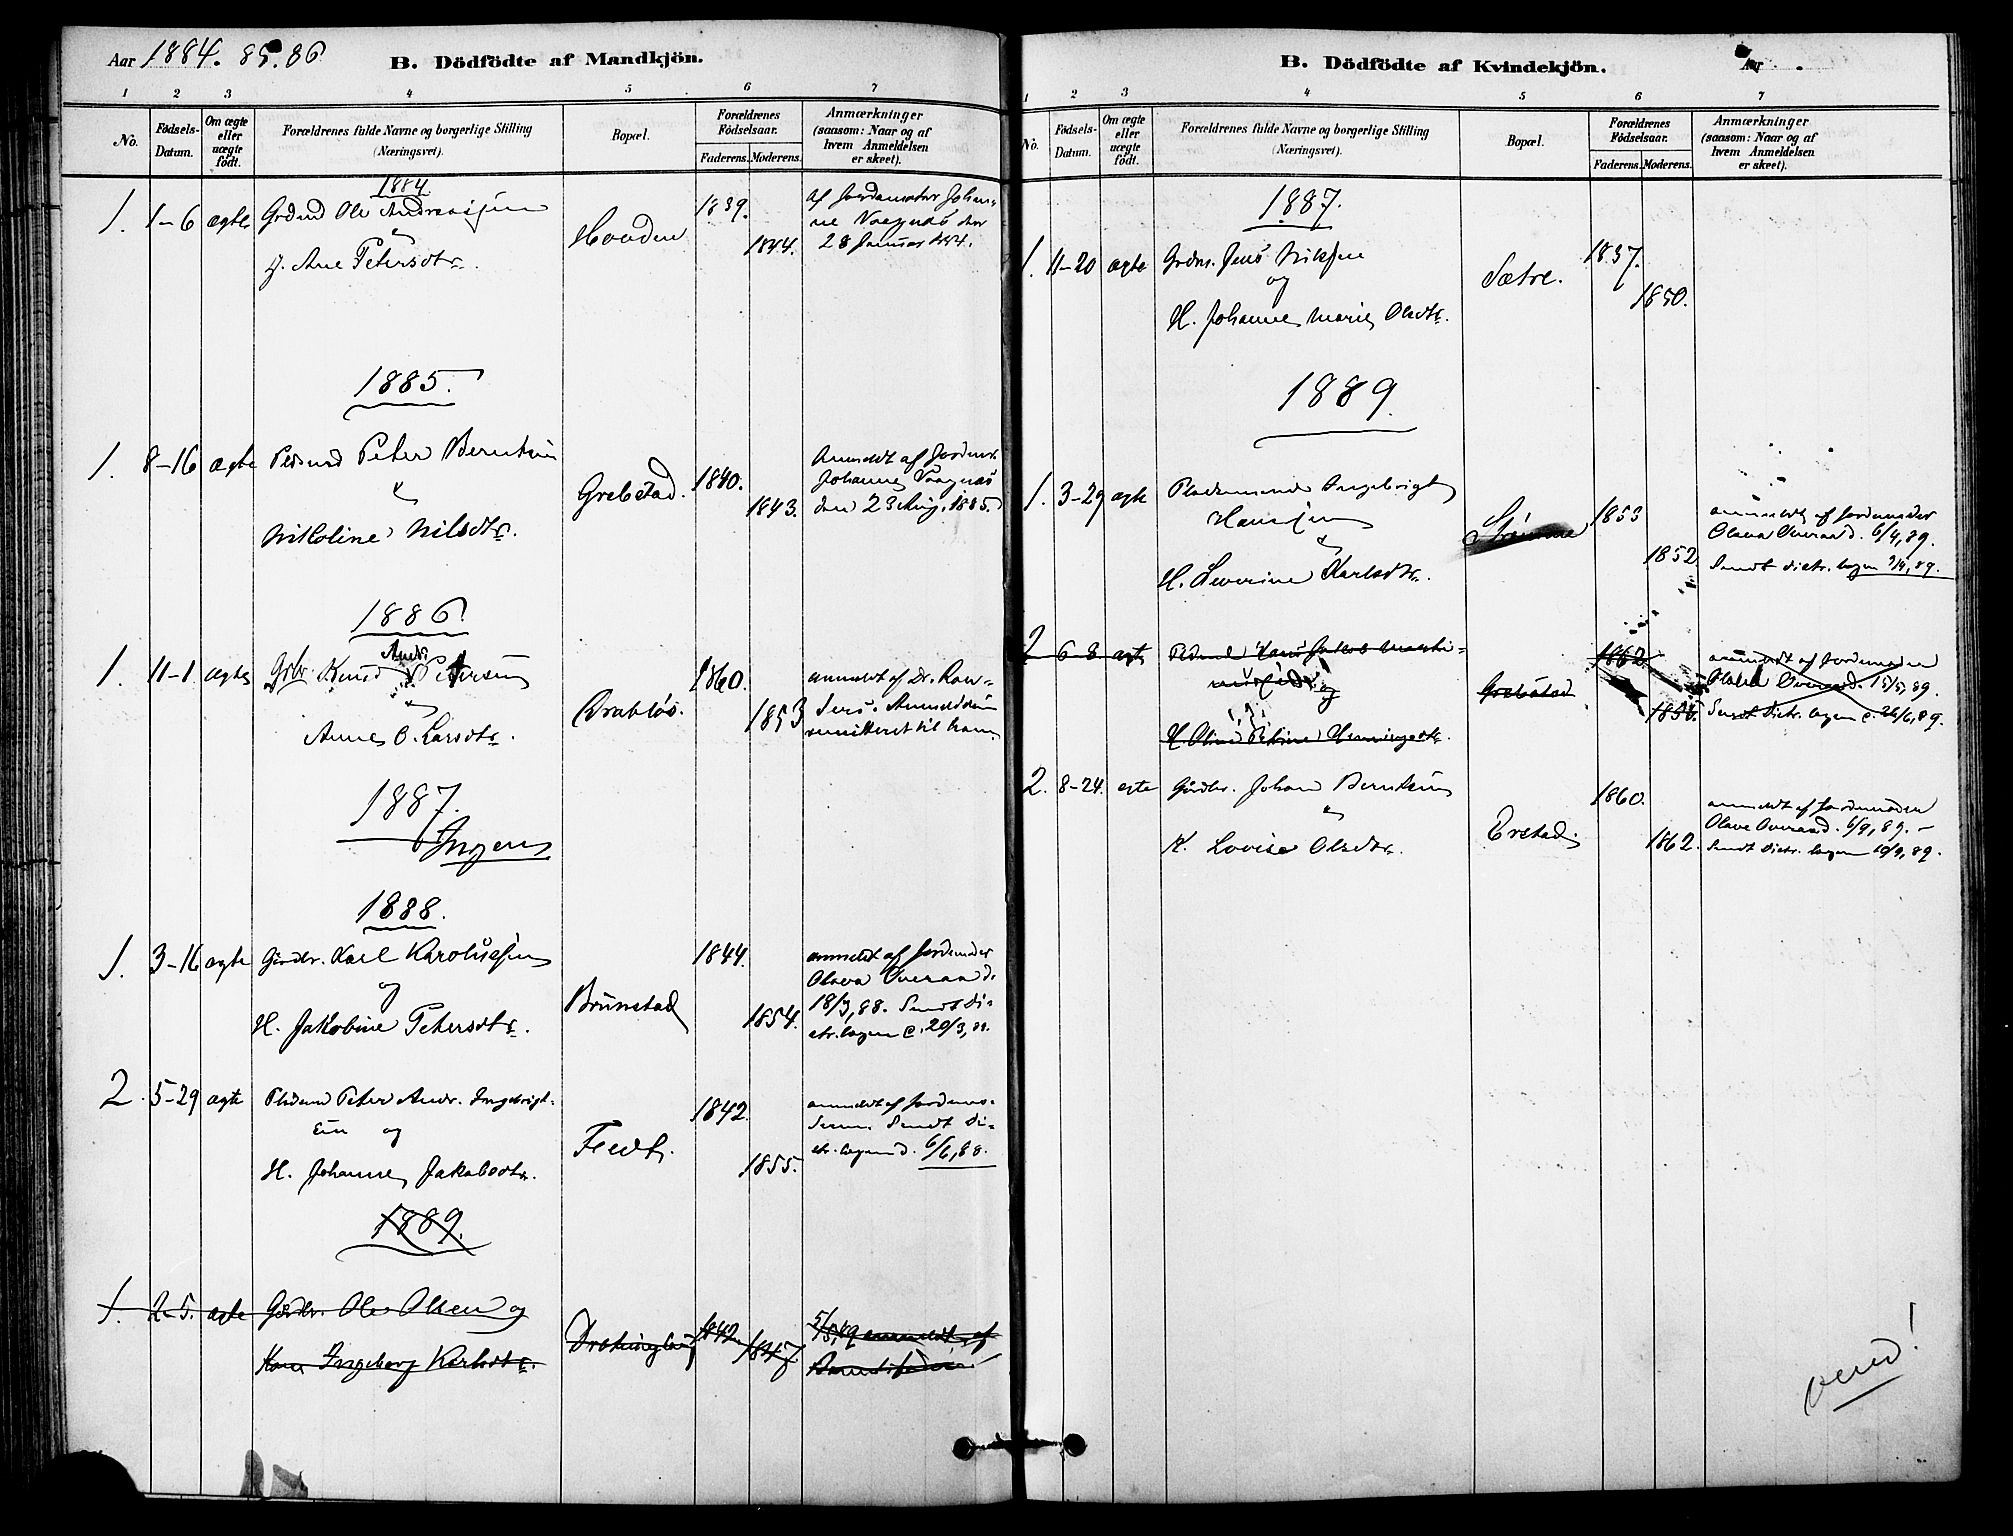 Aar 1884. 85. 86
B. Dödfödte af Mandkjön.
1 2 3 4 5 6 7
No.
Födsels-Datum.
Om ægte eller uægte födt.
Forældrenes fulde Navne og borgerlige Stilling
(Næringsvei).
Bopæl.
Forældrenes Födselsaar.
Faderens. Moderens.
Anmærkninger
(saasom: Naar og af
hvem Anmeldelsen
er skeet).
1884
1. 1-6 ægte Ole Andreassen
Ane Petersdtr.
1839.
1844.
1885.
1. 8-16 ægte Peter Berntsen
Nikoline Nilsdtr.
Grebstad. 1840.
1843.
Anmeldt af
den 23 Aug. 1885.
1886.
1. 11-1 ægte Gdbr. Knud Andr. Petersen
Anne O. Larsdtr.
Drabløs. 1860.
1853
anmeldt af Dr.
1887.
Ingen
1888.
1. 3-16 ægte Gårdbr. Karl Karolussen
og
H. Jakobine Petersdtr.
Brunstad 1844.
1854.
anmeldt af Jordemoder
Olava Overaa d.
18/3, 88. Sendt di-
str.lægen d. 20/3, 88.
2. 5-29 ægte Pladsmd Peter Andr. Ingebrigt-
sen og
H. Johanne Jakobsdtr.
Fedt. 1842.
1855.
anmeldt af
Sendt di-
str.lægen d. 6/6, 88.
1889.
1. 2-5. ægte Gårdbr. Ole Olsen og
Kone Ingeborg Karlsdtr.
1842. 1847
anmeldt af
B. Dödfödte af Kvindekjön.
Aar
1 2 3 4 5 6 7
No.
Födsels-Datum.
Om ægte eller uægte födt.
Forældrenes fulde Navne og borgerlige Stilling
(Næringsvei).
Bopæl.
Forældrenes Födselsaar.
Faderens. Moderens.
Anmærkninger
(saasom: Naar og af
hvem Anmeldelsen
er skeet).
1887.
1. 11-20 ægte Jens
og
H. Johanne Marie Olsdtr.
Sætre. 1837.
1850.
1889.
1. 3-29 ægte Pladsmand Ingebrigt
Hansen
H. Severine Karlsdtr.
1853
1852
anmeldt af Jordemoder
Olava Overaa d. 6/4, 89.
Sendt distr. lægen 9/4, 89.
2 6-8 ægte Hans Jakob
og
H. Oline Petrine Henningsdtr.
Grebstad 1862.
anmeldt af Jordemoder
Olava Overaa d. 15/5, 89.
Sendt distr. lægen d. 26/6, 89.
2. 8-24. ægte Gårdbr. Johan Berntsen
K. Lovise Olsdtr.
Erstad. 1860.
1862.
anmeldt af Jordemoder
Olava Overaa d. 6/9, 89. -
Sendt distr. lægen 10/9, 89.
vend!